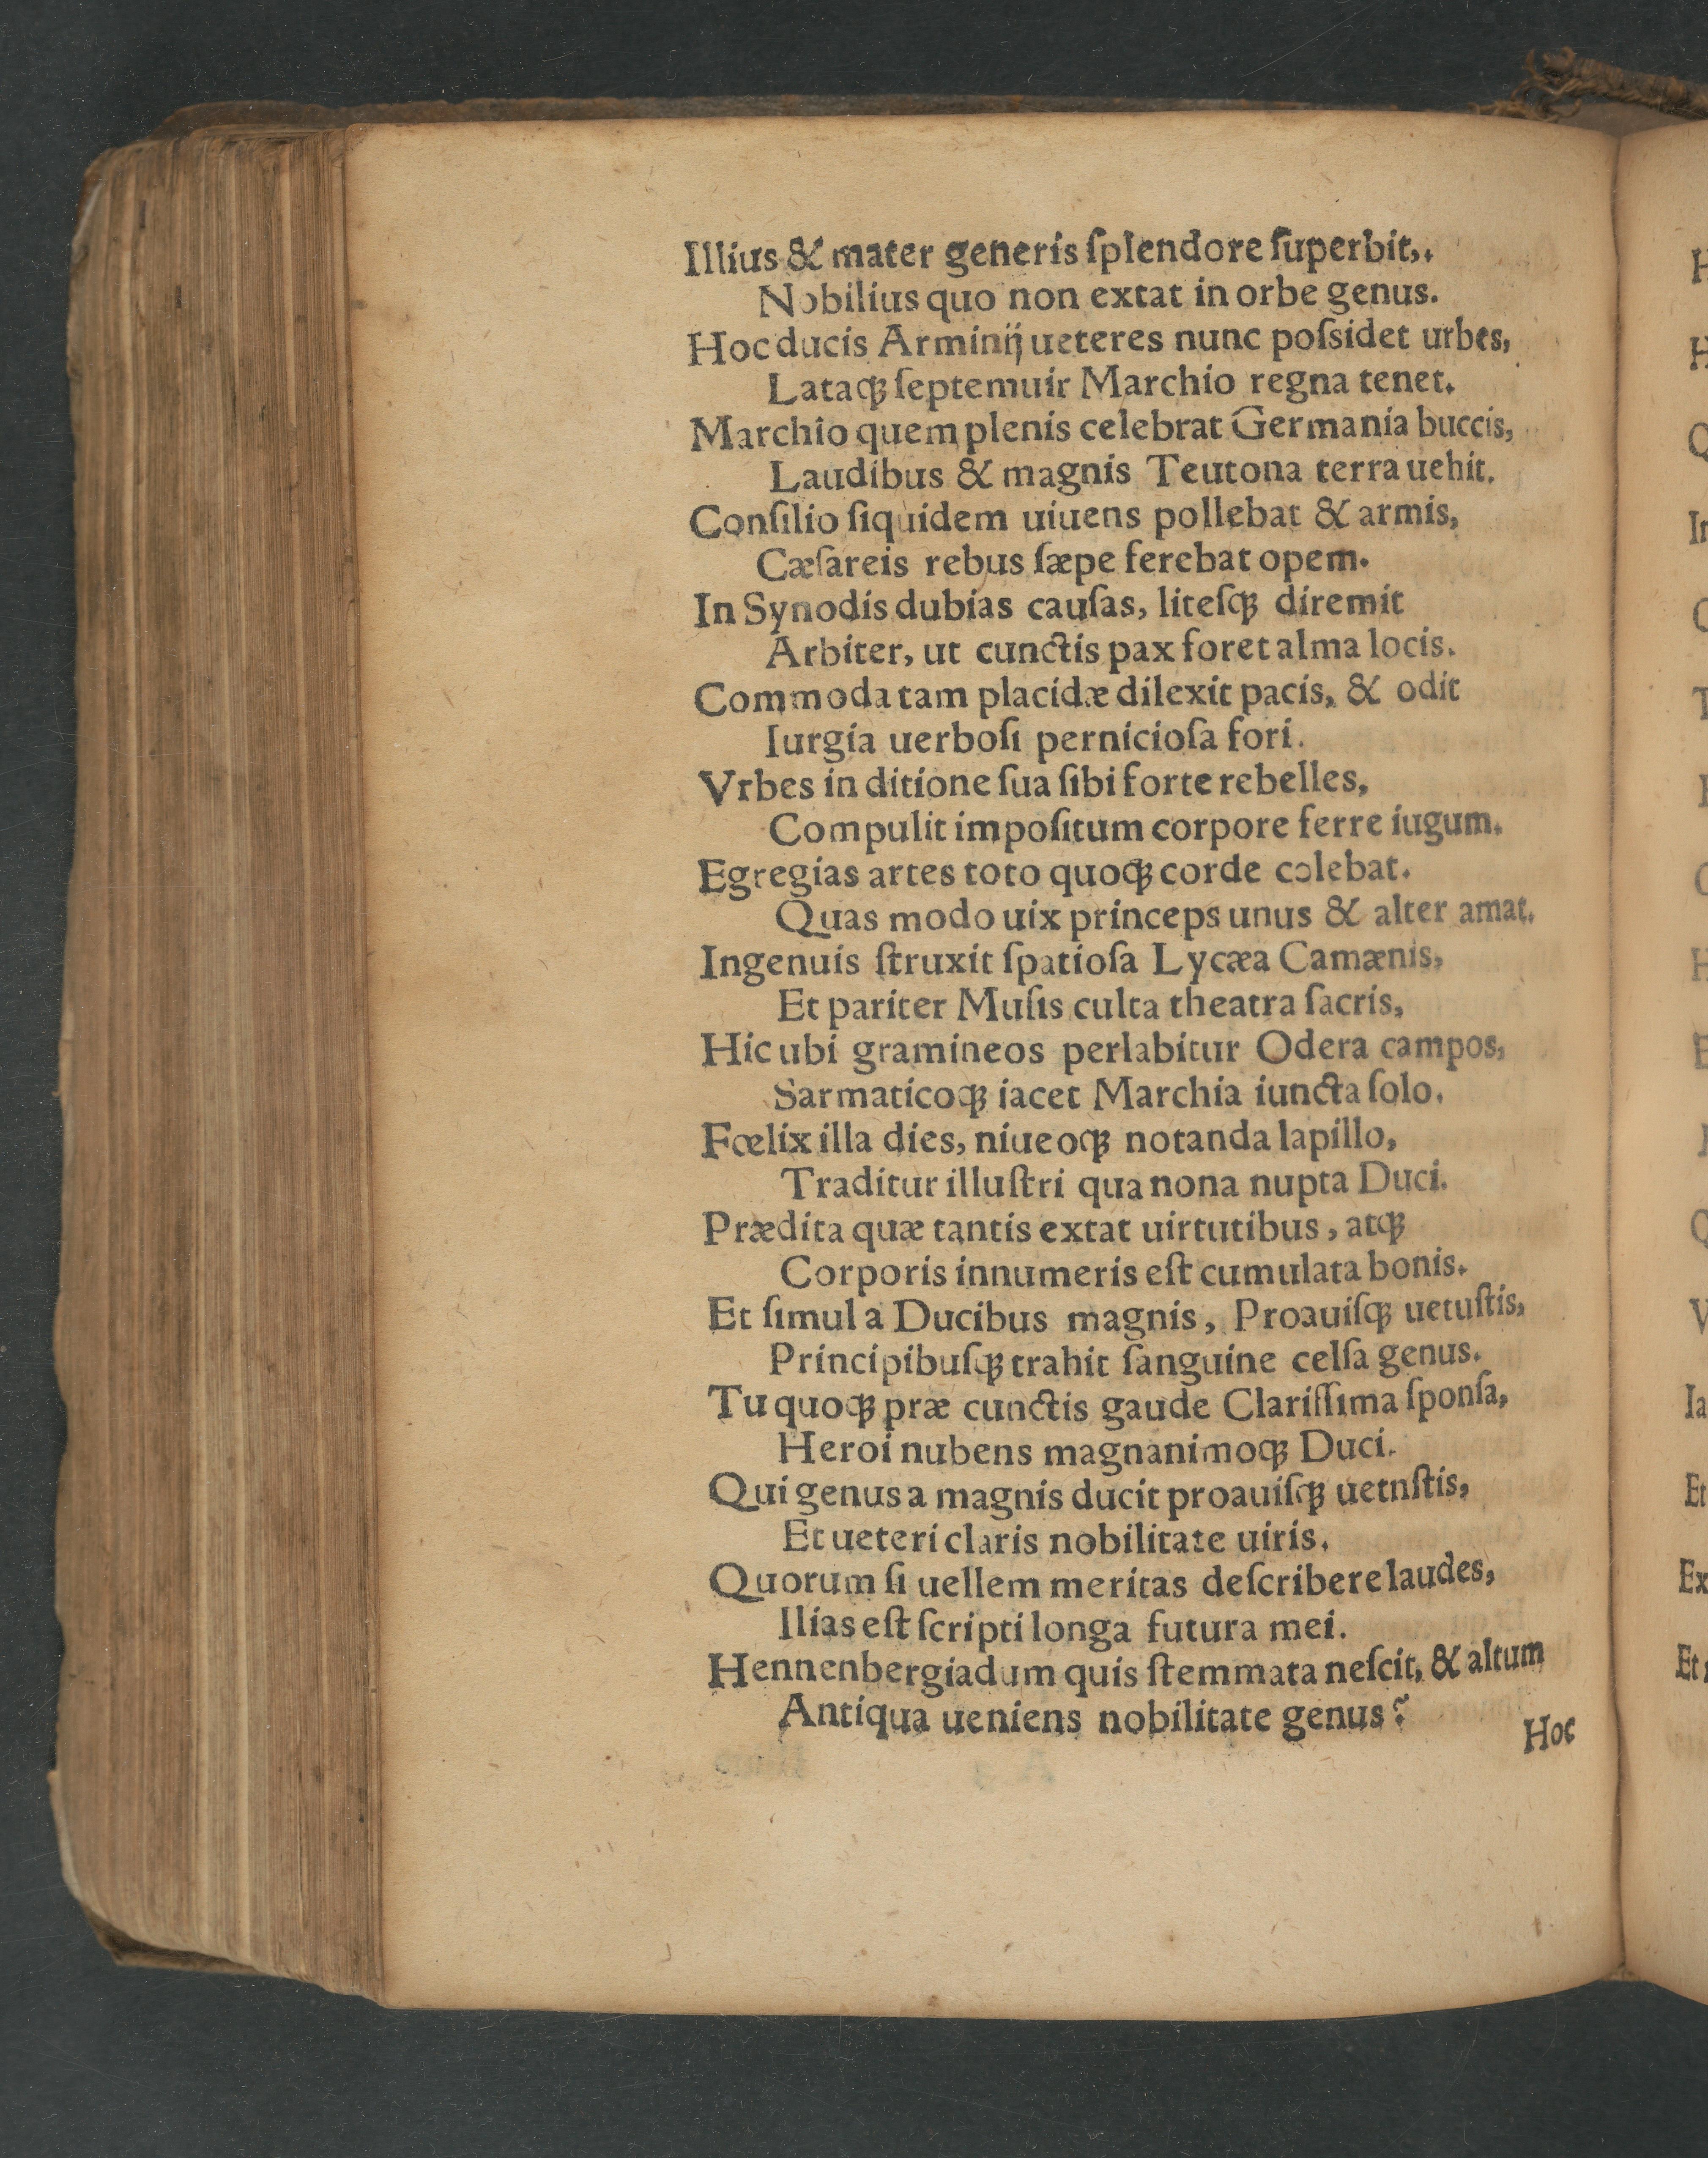 Illius & mater generis ſplendore ſuperbit,.
Nobilius quo non extat in orbe genus.
Hoc ducis Arminij ueteres nunc poſsidet urbes,
Lataqꝫ ſeptemuir Marchio regna tenet.
Marchio quem plenis celebrat Germania buccis,
Laudibus & magnis Teutona terra uehit.
Conſilio ſiquidem uiuens pollebat & armis,
Cæſareis rebus ſæpe ferebat opem.
In Synodis dubias cauſas, liteſqꝫ diremit
Arbiter, ut cunctis pax foret alma locis.
Commoda tam placidæ dilexit pacis, & odit
Iurgia uerboſi pernicioſa fori.
Vrbes in ditione ſua ſibi forte rebelles,
Compulit impoſitum corpore ferre iugum.
Egregias artes toto quoqꝫ corde colebat.
Quas modo uix princeps unus & alter amat.
Ingenuis ſtruxit ſpatioſa Lycæa Camænis,
Et pariter Muſis culta theatra ſacris,
Hic ubi gramineos perlabitur Odera campos,
Sarmaticoqꝫ iacet Marchia iuncta ſolo.
Fœlix illa dies, niueoqꝫ notanda lapillo,
Traditur illuſtri qua nona nupta Duci.
Prædita quæ tantis extat uirtutibus, atqꝫ
Corporis innumeris eſt cumulata bonis.
Et ſimul a Ducibus magnis, Proauiſqꝫ uetuſtis,
Principibuſqꝫ trahit ſanguine celſa genus.
Tu quoqꝫ præ cunctis gaude Clariſſima ſponſa,
Heroi nubens magnanimoqꝫ Duci.
Qui genus a magnis ducit proauiſqꝫ uetnſtis,
Et ueteri claris nobilitate uiris.
Quorum ſi uellem meritas deſcribere laudes,
Ilias eſt ſcripti longa futura mei.
Hennenbergiadum quis ſtemmata neſcit, & altum
Antiqua ueniens nobilitate genus?
Hoc